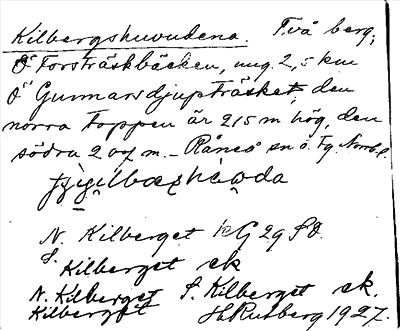 Kilbergshuvudena. Två berg,
Ö Forsträskbäcken, ung. 2,5 km
Ö Gunnarsdjupträsket, den
norra toppen är 215 m hög, den
södra 207 m. – Råneå sn ö.
N. Kilberget G 29 SO.
S. Kilberget ek
N. Kilberget S. Kilberget ek.
Kilberget H. Rutberg 1927.